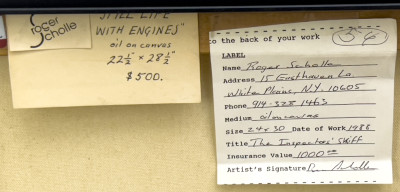 Roger
Scholle
"STILL LIFE
WITH ENGINES"
oil on canvas
22 1/2" × 28 1/2"
$500.
to the back of your work
36
LABEL
Name Roger Scholle
Address 15 Easthaven La
White Plains, N.Y. 10605
Phone 914-328-1463
Medium oil on canvas
Size 24x30 Date of Work 1986
Title The Inspectors' Skiff
Insurance Value 1000.00
Artist's Signature